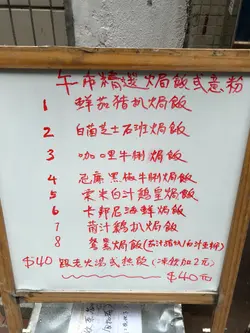 午市精選焗飯或意粉
1 鮮茄豬扒焗飯
2 白菌芝士石班焗飯
3 咖喱牛脷焗飯
4 尼庶黑椒牛脷焗飯
5 粟米白汁鷄皇焗飯
6 卡邦尼海鮮焗飯
7 茄汁鷄扒焗飯
8 餐菜焗飯
$40 跟老火湯或熱飲(凍飲加2元)
$40元